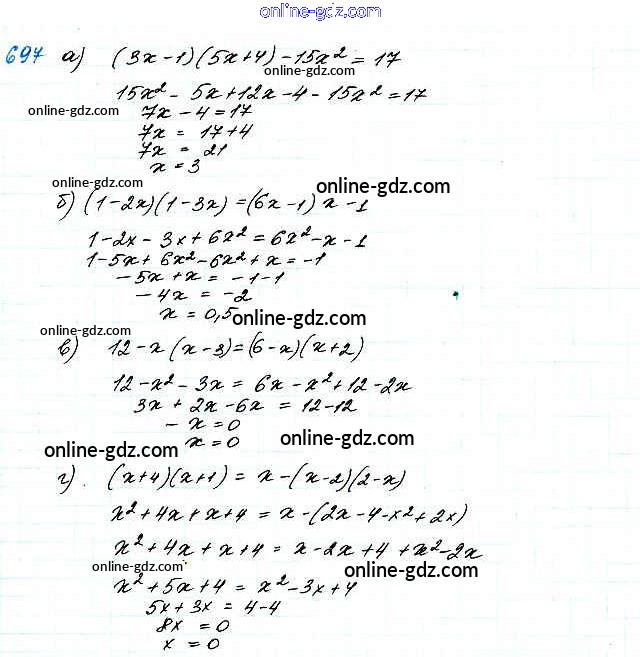 online-gdz.com
697 а) (3x-1)(5x+4)-15x² = 17
online-gdz.com
15x² - 5x+12x-4-15x²=17
online-gdz.com 7x-4=17
7x = 17+4
7x = 21
x = 3
online-gdz.com online-gdz.com
б) (1-2x)(1-3x) = (6x-1)x-1
1-2x-3x+6x² = 6x²-x-1
1-5x+6x²-6x²+x = -1
-5x+x = -1-1
-4x = -2
x = 0,5
online-gdz.com
online-gdz.com
в) 12-x(x-3)=(6-x)(x+2)
12-x²-3x = 6x-x²+12-2x
3x+2x-6x = 12-12
-x=0
x=0
online-gdz.com online-gdz.com
г). (x+4)(x+1) = x-(x-2)(2-x)
x²+4x+x+4 = x-(2x-4-x²+2x)
x²+4x+x+4 = x-2x+4+x²-2x
online-gdz.com online-gdz.com
x²+5x+4 = x²-3x+4
5x+3x = 4-4
8x = 0
x = 0